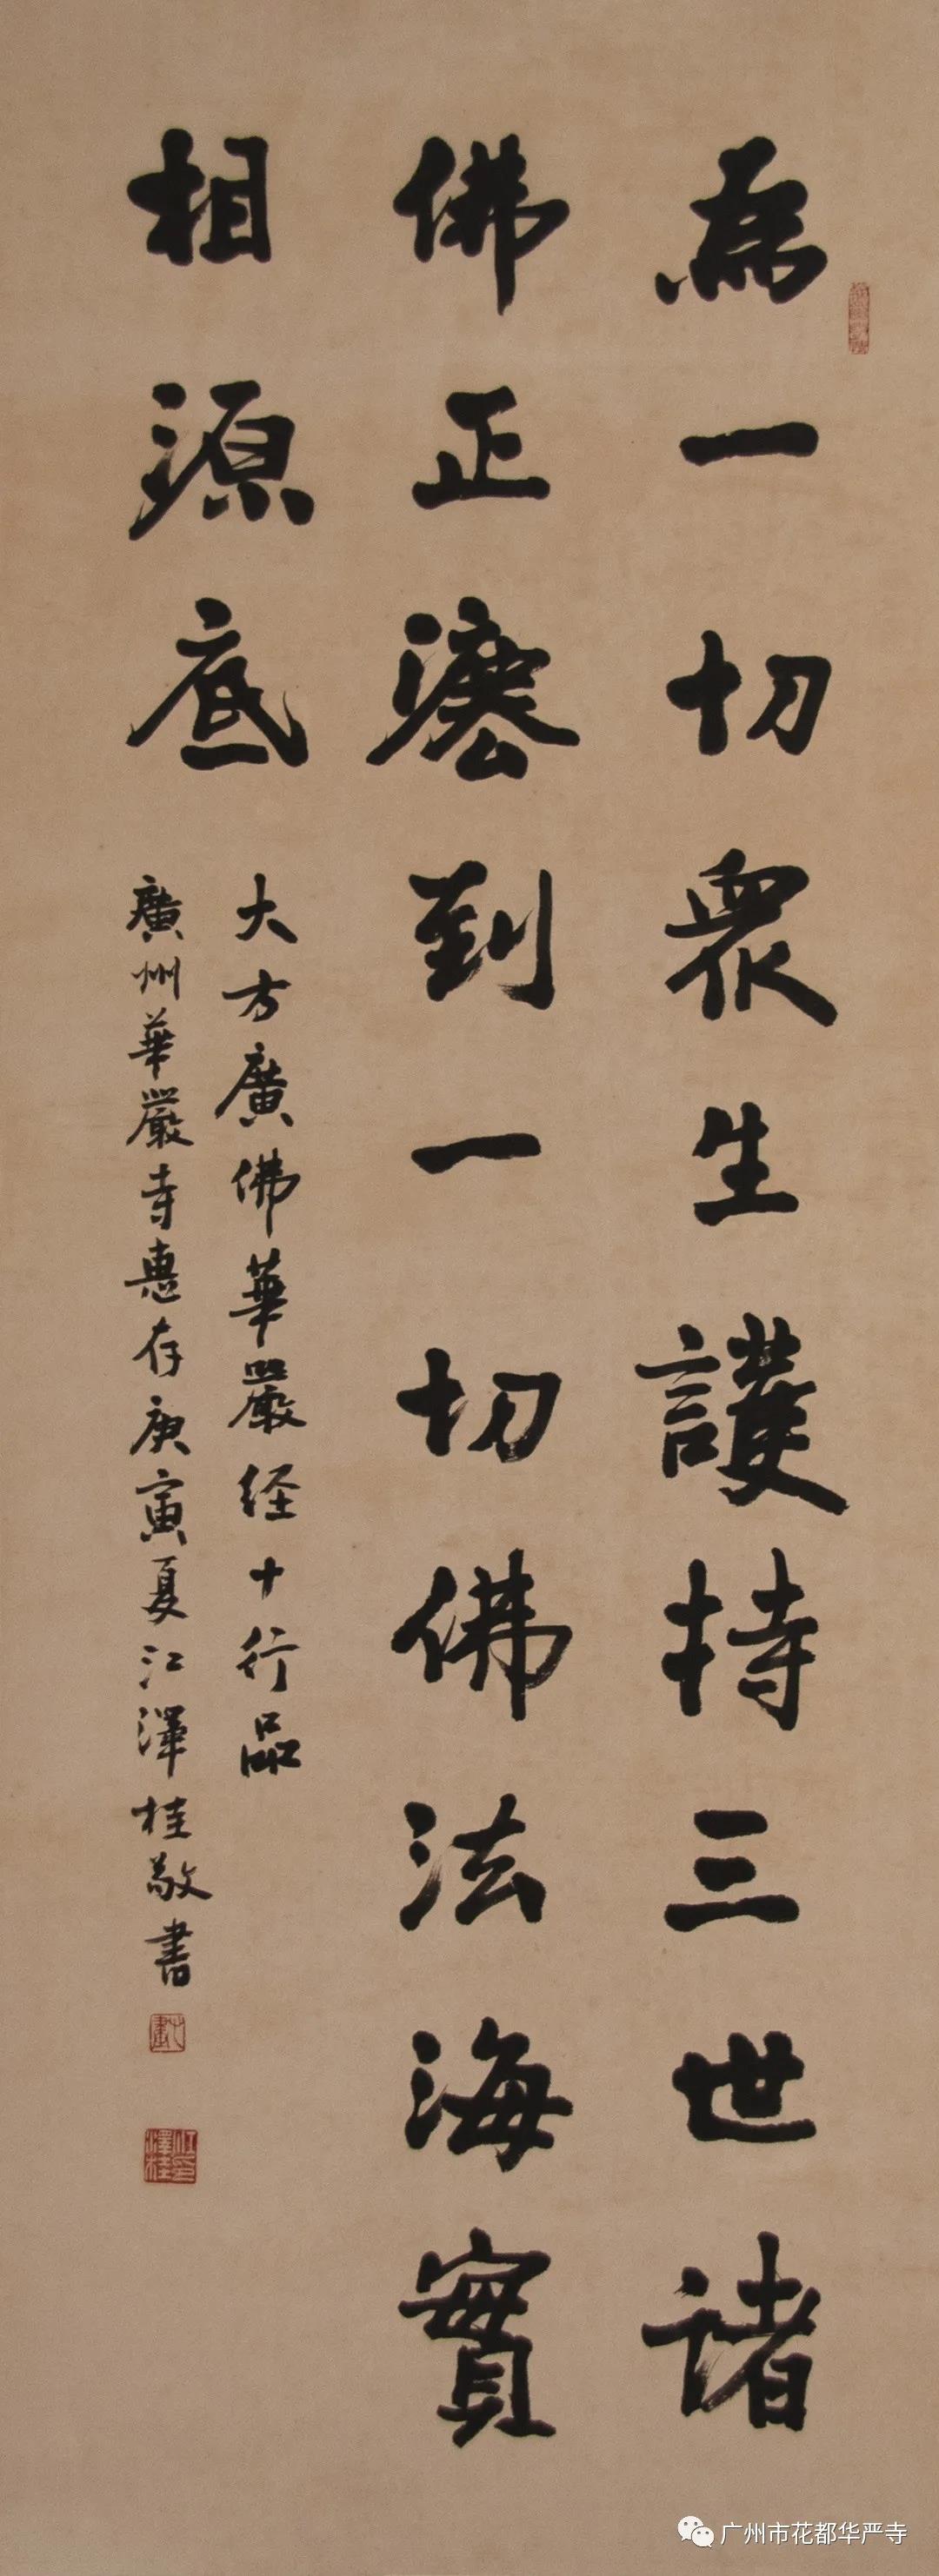 為一切眾生護持三世諸
佛正灋到一切佛法海實
相源底
大方廣佛華嚴经十行品
廣州華嚴寺惠存庚寅夏江澤桂敬書
江澤桂印
广州市花都华严寺